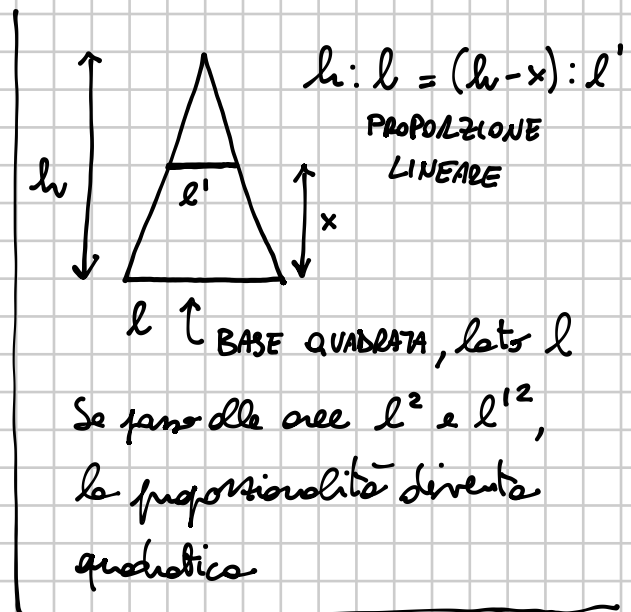 h : l = (h-x) : l'
PROPORZIONE
LINEARE
h
l'
x
l
BASE QUADRATA, lato l
Se passo alle aree l² e l'²,
la proporzionalità diventa
quadratica